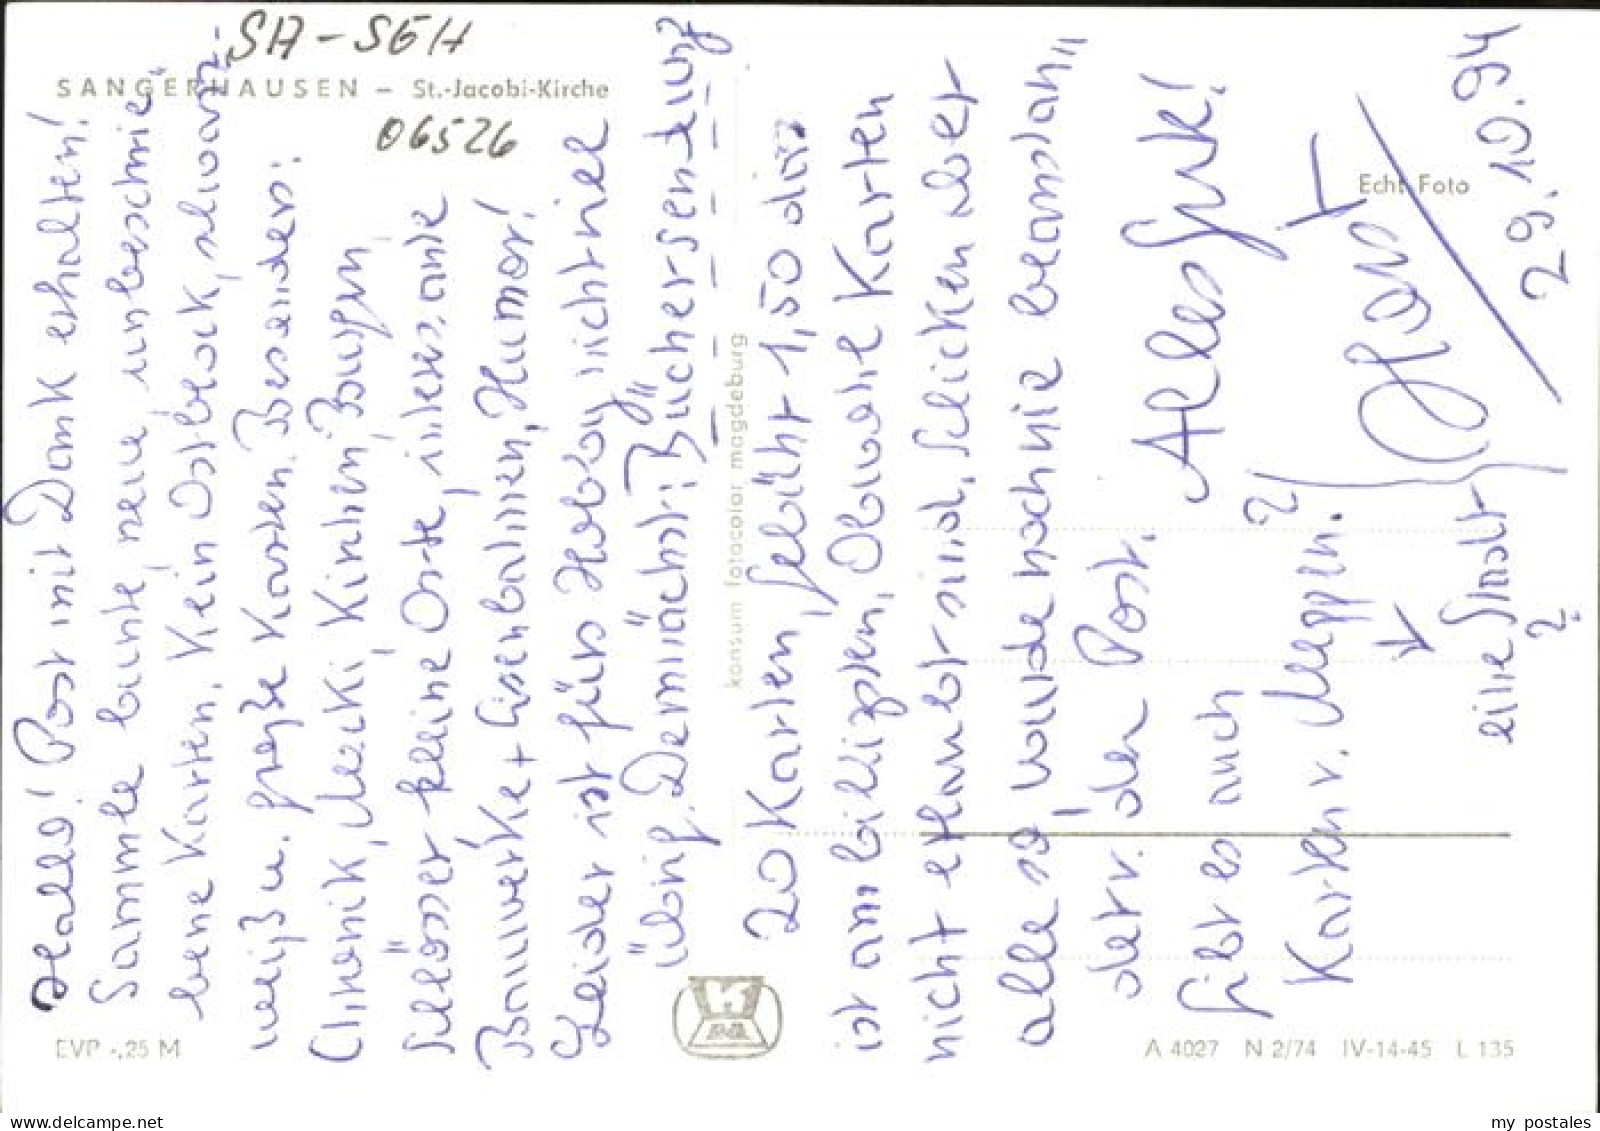 SA-SGH
SANGERHAUSEN – St.-Jacobi-Kirche
06526
Hallo! Post mit Dank erhalten!
Sammle bunte, neue unbeschrie"
bene Karten, Kein Ostblock, schwarz-
weiß u. große Karten. Besonders:
Chronik, Mecki, Kirchen, Burgen,
Schlösser kleine Orte, interessante
Bauwerke + Eisenbahnen, Humor!
Leider ist fürs Hobby nicht viel
übrig. Demnächst: "Büchersendung
20 Karten, Gebühr 1,50 das
ist am billigsten, Obwohl Karten
nicht erlaubt sind, schicken wir
alle so, wurde noch nie beanstan"
det v. der Post. Alles Gute!
Gibt es auch
Karten v. Meppen. ?
eine Stadt
?
29.10.94
Echt Foto
konsum fotocolor magdeburg
EVP -,25 M
A 4027 N 2/74 IV-14-45 L 135
delcampe.net
my_postales